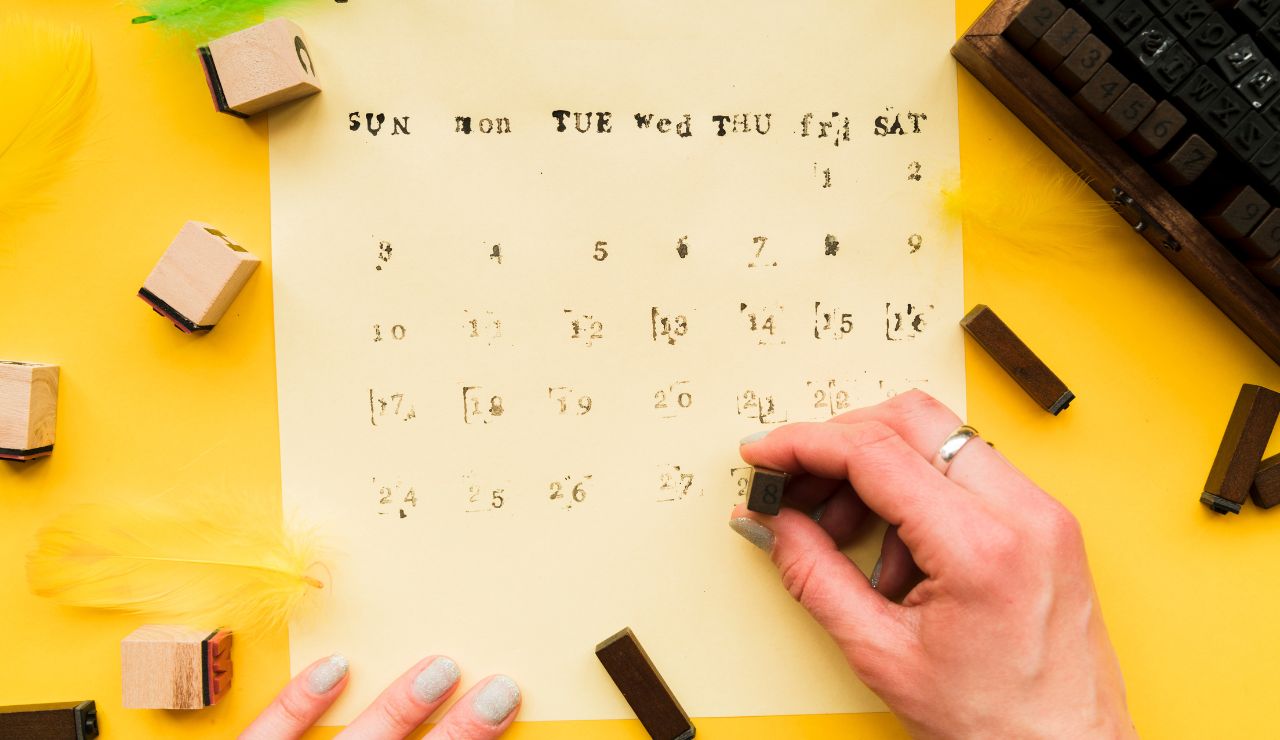 SUN mon TUE wed THU fri SAT
1 2
3 4 5 6 7 8 9
10 11 12 13 14 15 16
17 18 19 20 21 22
24 25 26 27 2 8
2 3 4 5 6 7
9